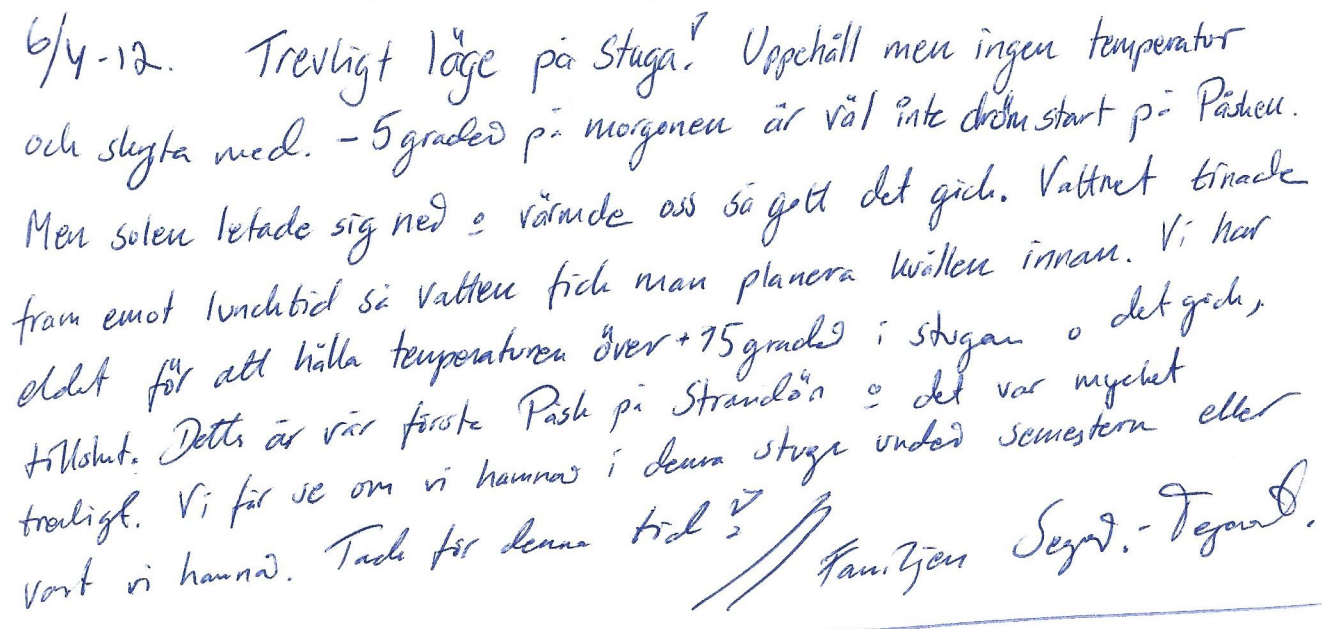 6/4-12. Trevligt läge på Stuga! Uppehåll men ingen temperatur
och skryta med. -5 grader på morgonen är väl inte drömstart på Påsken.
Men solen letade sig ned o värmde oss så gott det gick. Vattnet tinade
fram emot lunchtid så vatten fick man planera kvällen innan. Vi har
eldat för att hålla temperaturen över +15 grader i stugan o det gick,
tillslut. Detta är vår första Påsk på Strandön o det var mycket
trevligt. Vi får se om vi hamnar i denna stuga under semestern eller
vart vi hamnar. Tack för denna tid! // Familjen